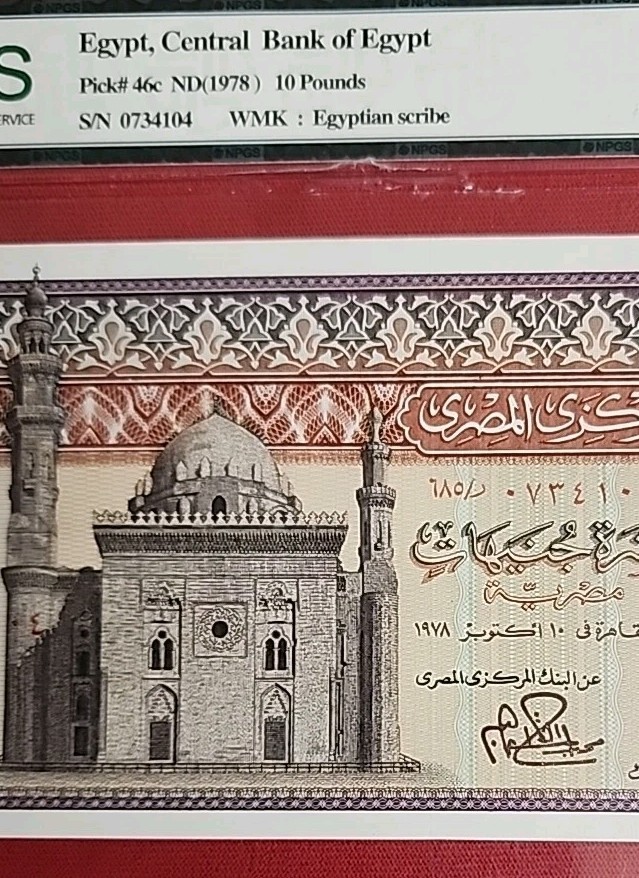 NPGS
S
ERVICE
Egypt, Central Bank of Egypt
Pick# 46c ND(1978) 10 Pounds
S/N 0734104 WMK : Egyptian scribe
NPGS NPGS NPGS
المصرى
٦٨٥/ر ٠٧٣٤١٠
جنيهات
مصرية
فى ١٠ اكتوبر ١٩٧٨
عن البنك المركزى المصرى